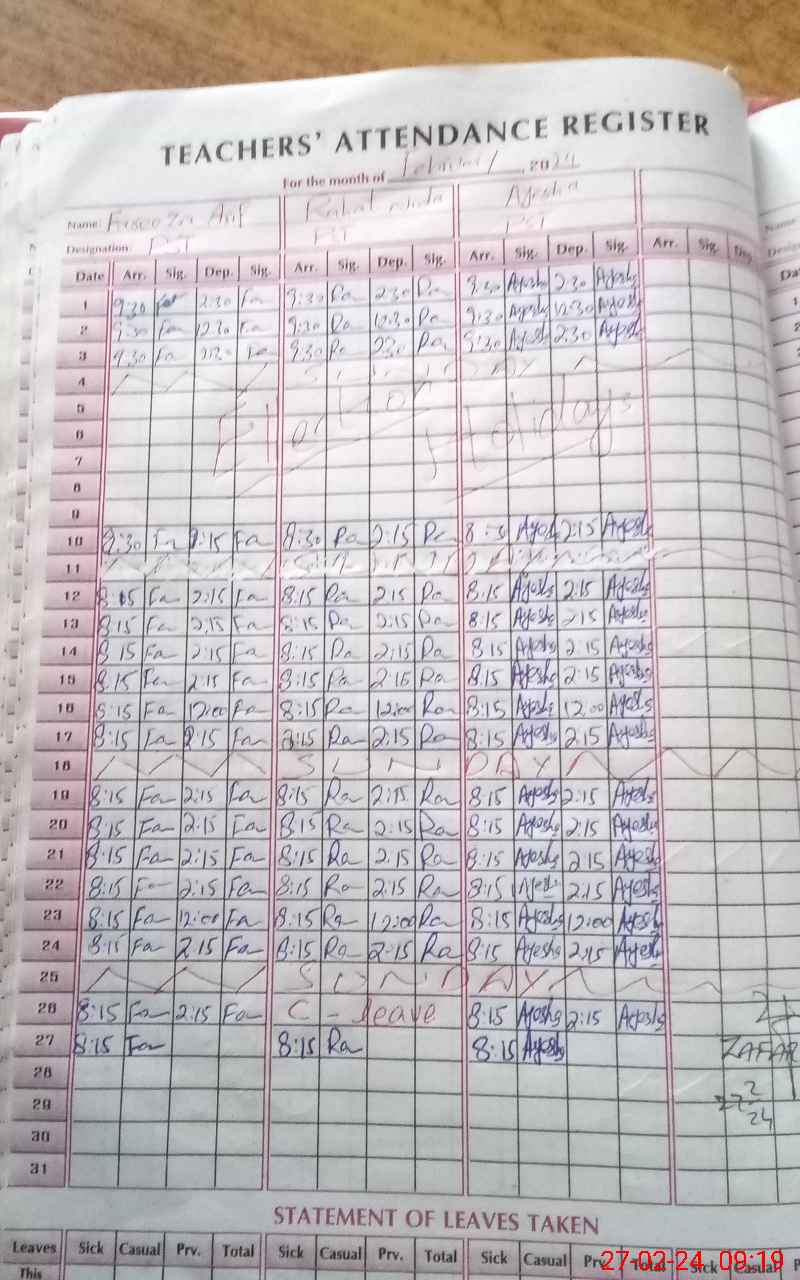 TEACHERS' ATTENDANCE REGISTER
For the month of February, 2024
Name: Arif Rahat Ayesha
Designation: PST PST
Date Arr. Sig. Dep. Sig. Arr. Sig. Dep. Sig. Arr. Sig. Dep. Sig. Arr. Sig. Dep.
1 9:30 Fa 2:30 Fa 9:30 Ra 2:30 Ra 9:30 Ayesha 2:30 Ayesha
2 9:30 Fa 12:30 Fa 9:30 Ra 12:30 Ra 9:30 Ayesha 12:30 Ayesha
3 9:30 Fa 2:30 Fa 9:30 Ra 2:30 Ra 9:30 Ayesha 2:30 Ayesha
4 SUNDAY
5 Election Holidays
6
7
8
9
10 8:30 Fa 2:15 Fa 8:30 Ra 2:15 Ra 8:30 Ayesha 2:15 Ayesha
11 SUNDAY
12 8:15 Fa 2:15 Fa 8:15 Ra 2:15 Ra 8:15 Ayesha 2:15 Ayesha
13 8:15 Fa 2:15 Fa 8:15 Ra 2:15 Ra 8:15 Ayesha 2:15 Ayesha
14 8:15 Fa 2:15 Fa 8:15 Ra 2:15 Ra 8:15 Ayesha 2:15 Ayesha
15 8:15 Fa 2:15 Fa 8:15 Ra 2:15 Ra 8:15 Ayesha 2:15 Ayesha
16 8:15 Fa 12:00 Fa 8:15 Ra 12:00 Ra 8:15 Ayesha 12:00 Ayesha
17 8:15 Fa 2:15 Fa 8:15 Ra 2:15 Ra 8:15 Ayesha 2:15 Ayesha
18 SUNDAY
19 8:15 Fa 2:15 Fa 8:15 Ra 2:15 Ra 8:15 Ayesha 2:15 Ayesha
20 8:15 Fa 2:15 Fa 8:15 Ra 2:15 Ra 8:15 Ayesha 2:15 Ayesha
21 8:15 Fa 2:15 Fa 8:15 Ra 2:15 Ra 8:15 Ayesha 2:15 Ayesha
22 8:15 Fa 2:15 Fa 8:15 Ra 2:15 Ra 8:15 Ayesha 2:15 Ayesha
23 8:15 Fa 12:00 Fa 8:15 Ra 12:00 Ra 8:15 Ayesha 12:00 Ayesha
24 8:15 Fa 2:15 Fa 8:15 Ra 2:15 Ra 8:15 Ayesha 2:15 Ayesha
25 SUNDAY
26 8:15 Fa 2:15 Fa C - leave 8:15 Ayesha 2:15 Ayesha
27 8:15 Fa 8:15 Ra 8:15 Ayesha ZAFAR
28
29 27 2 24
30
31
STATEMENT OF LEAVES TAKEN
Leaves Sick Casual Prv. Total Sick Casual Prv. Total Sick Casual Prv. Total Sick Casual
This
27-02-24 09:19